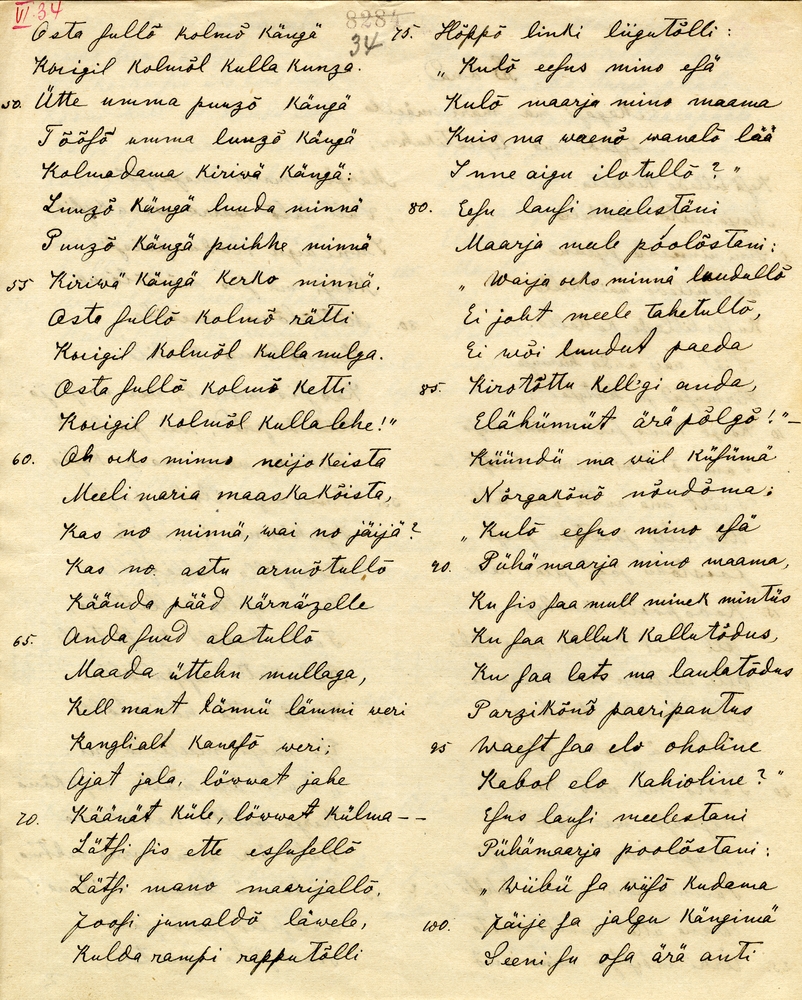 VI. 34
8284
34
Osta sullõ kolmõ kängä
Kõigil kolmõl kulla kunza.
50. Ütte umma punzõ kängä
Tõõsõ umma lunzõ kängä
Kolmadama kiriwä kängä:
Lunzõ kängä luuda minnä
Punzõ kängä puihhe minnä
55 Kiriwä kängä kerko minnä.
Osta sullõ kolmõ rätti
Kõigil kolmõl kulla nulga.
Osta sullõ kolmõ ketti
Kõigil kolmõl kulla lehe!"
60. Oh oeks minno neijokeista
Meeli maria maaskakõista,
Kas no minnä, wai no jäijä?
Kas no astu armõtullõ
Käända pääd kärnäzelle
65. Anda suud alatullõ
Maada üttehn mullaga,
Kell mant lännü lämmi weri
Kanglialt kanasõ weri;
Ajat jala, löwwat jahe
70. Käänät küle, löwwat külma --
Lätsi sis ette essusellõ
Lätsi mano maarijallõ,
Joosi jumaldõ läwele,
Kulda rampi rapputõlli
75. Hõppõ linki liigutõlli:
"Kulõ eesus mino esä
Kulõ maarja mino maama
Kuis ma waenõ wanalõ lää
Inne aigu ilotullõ?"
80. Eesu lausi meelestäni
Maarja meele poolõstani:
"Waija oeks minnä luudullõ
Ei joht meele tahetullõ,
Ei wõi luudut paeda
85. Kirotõttu kell'gi anda,
Elähünnüt ärä põlgõ!"—
Küündü ma wiil küsümä
Nõrgakõnõ nõudõma:
"Kulõ eesus mino esä
90. Pühämaarja mino maama,
Ku sis saa mull minek mintüs
Ku saa kalluk kallutõdus,
Ku saa lats ma laulatõdus
Parzikõnõ paaripantus
95 Waest saa elo oholine
Kabol elo kahioline?"
Esus lausi meelestani
Pühämaarja poolõstani:
"Wiibü sa wiisõ kudama
100. Jäije sa jalgu kängimä
Seeni su osa ärä anti